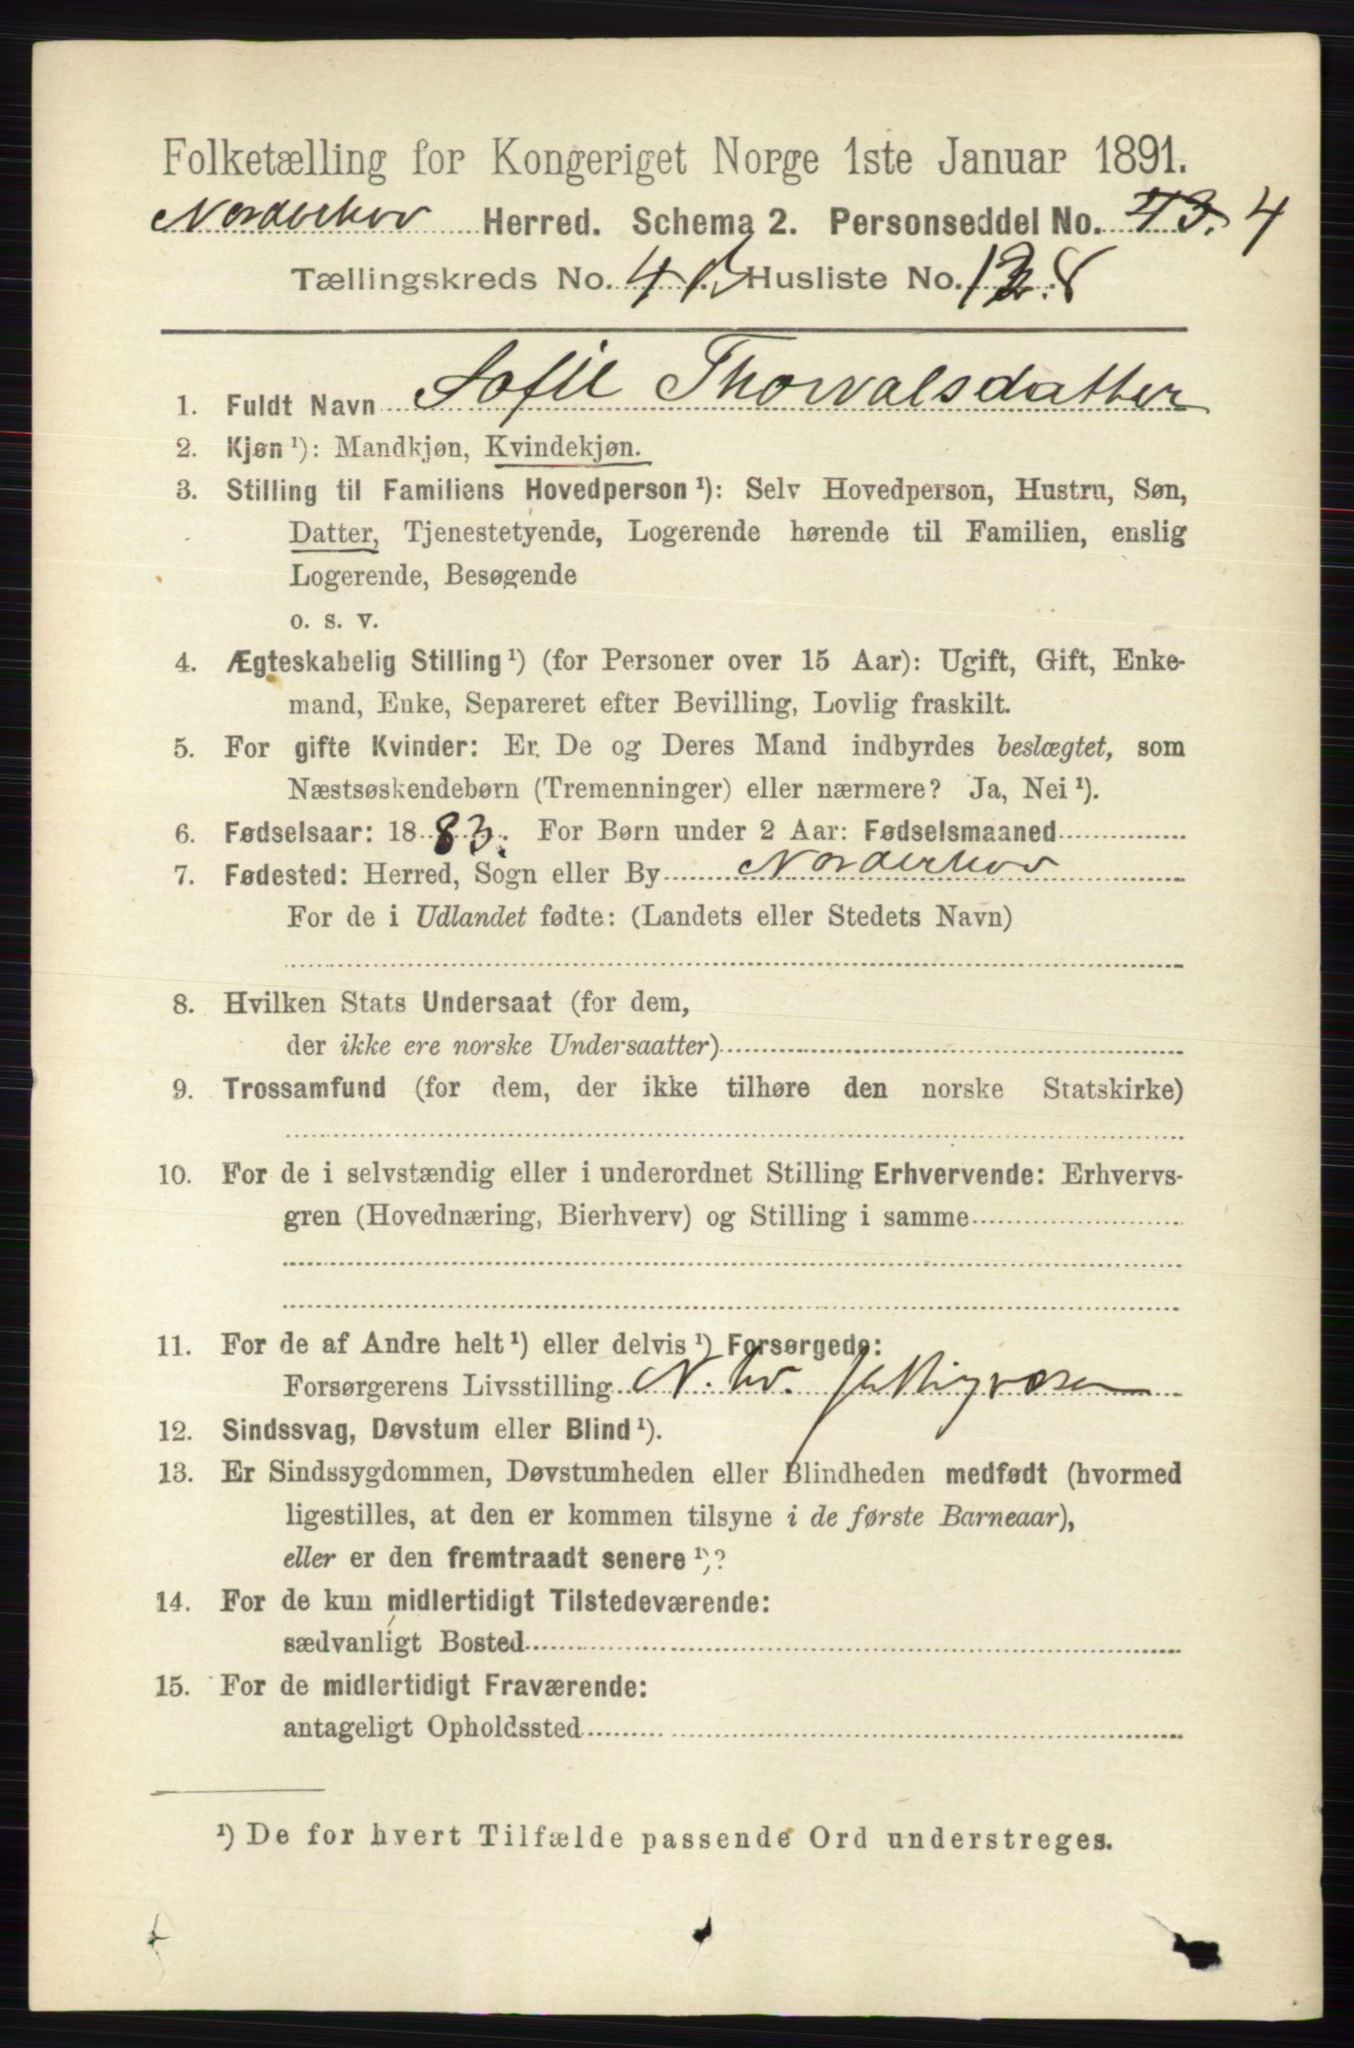 Folketælling for Kongeriget Norge 1ste Januar 1891.
Norderhov Herred. Schema 2. Personseddel No. 43. 4
Tællingskreds No. 4 Husliste No. 8
1. Fuldt Navn Sofie Thorvalsdatter
2. Kjøn ¹): Mandkjøn, Kvindekjøn.
3. Stilling til Familiens Hovedperson ¹): Selv Hovedperson, Hustru, Søn,
Datter, Tjenestetyende, Logerende hørende til Familien, enslig
Logerende, Besøgende
o. s. v.
4. Ægteskabelig Stilling ¹) (for Personer over 15 Aar): Ugift, Gift, Enke-
mand, Enke, Separeret efter Bevilling, Lovlig fraskilt.
5. For gifte Kvinder: Er De og Deres Mand indbyrdes beslægtet, som
Næstsøskendebørn (Tremenninger) eller nærmere? Ja, Nei ¹).
6. Fødselsaar: 1883. For Børn under 2 Aar: Fødselsmaaned
7. Fødested: Herred, Sogn eller By Norderhov
For de i Udlandet fødte: (Landets eller Stedets Navn)
8. Hvilken Stats Undersaat (for dem,
der ikke ere norske Undersaatter)
9. Trossamfund (for dem, der ikke tilhøre den norske Statskirke)
10. For de i selvstændig eller i underordnet Stilling Erhvervende: Erhvervs-
gren (Hovednæring, Bierhverv) og Stilling i samme
11. For de af Andre helt ¹) eller delvis ¹) Forsørgede:
Forsørgerens Livsstilling N. hv. fattigvæsen
12. Sindssvag, Døvstum eller Blind ¹).
13. Er Sindssygdommen, Døvstumheden eller Blindheden medfødt (hvormed
ligestilles, at den er kommen tilsyne i de første Barneaar),
eller er den fremtraadt senere ¹)?
14. For de kun midlertidigt Tilstedeværende:
sædvanligt Bosted
15. For de midlertidigt Fraværende:
antageligt Opholdssted
¹) De for hvert Tilfælde passende Ord understreges.